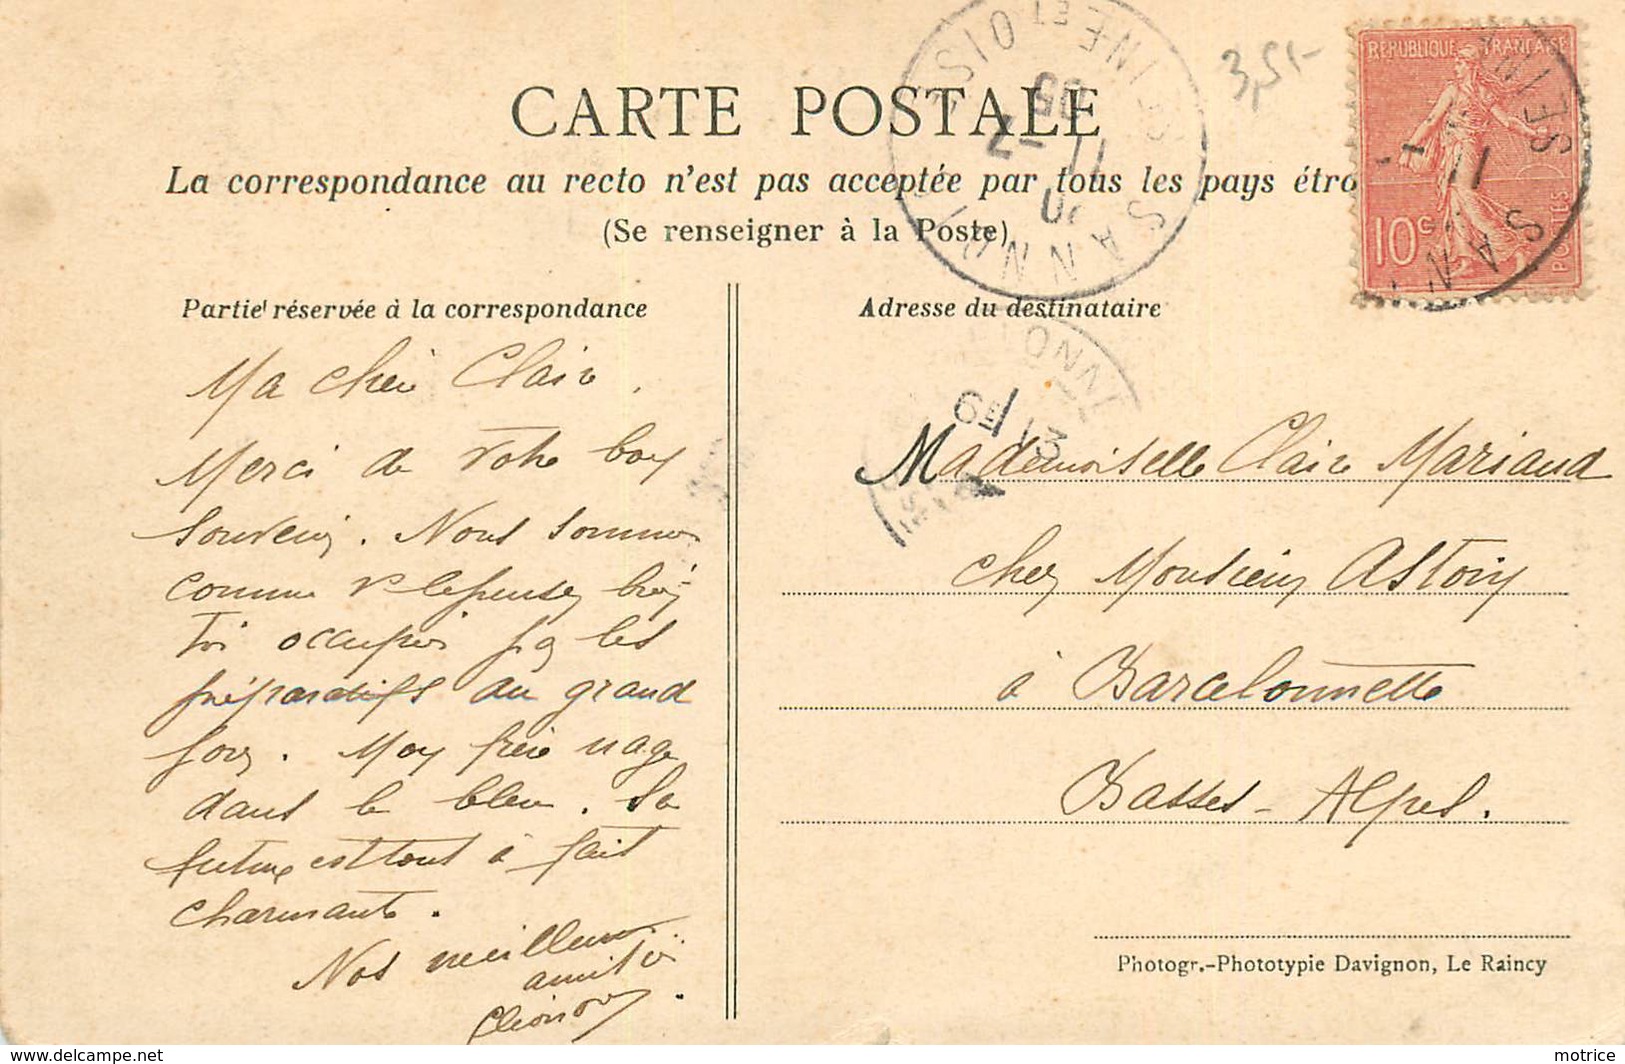 CARTE POSTALE
La correspondance au recto n'est pas acceptée par tous les pays étra
(Se renseigner à la Poste)
Partie réservée à la correspondance
Ma chère Claire,
Merci de votre bon
souvenir. Nous sommes
comme v/ le pensez bien
très occupés par les
préparatifs du grand
jour. Mon frère nage
dans le bleu. Sa
future est tout à fait
charmante.
Nos meilleures
amitiés
Adresse du destinataire
Mademoiselle Claire Mariaud
chez Monsieur Astoin
à Barcelonnette
Basses-Alpes.
Photogr.-Phototypie Davignon, Le Raincy
REPUBLIQUE FRANÇAISE
10c
POSTES
SANNOIS
SEINE ET OISE
3,50-
delcampe.net
motrice